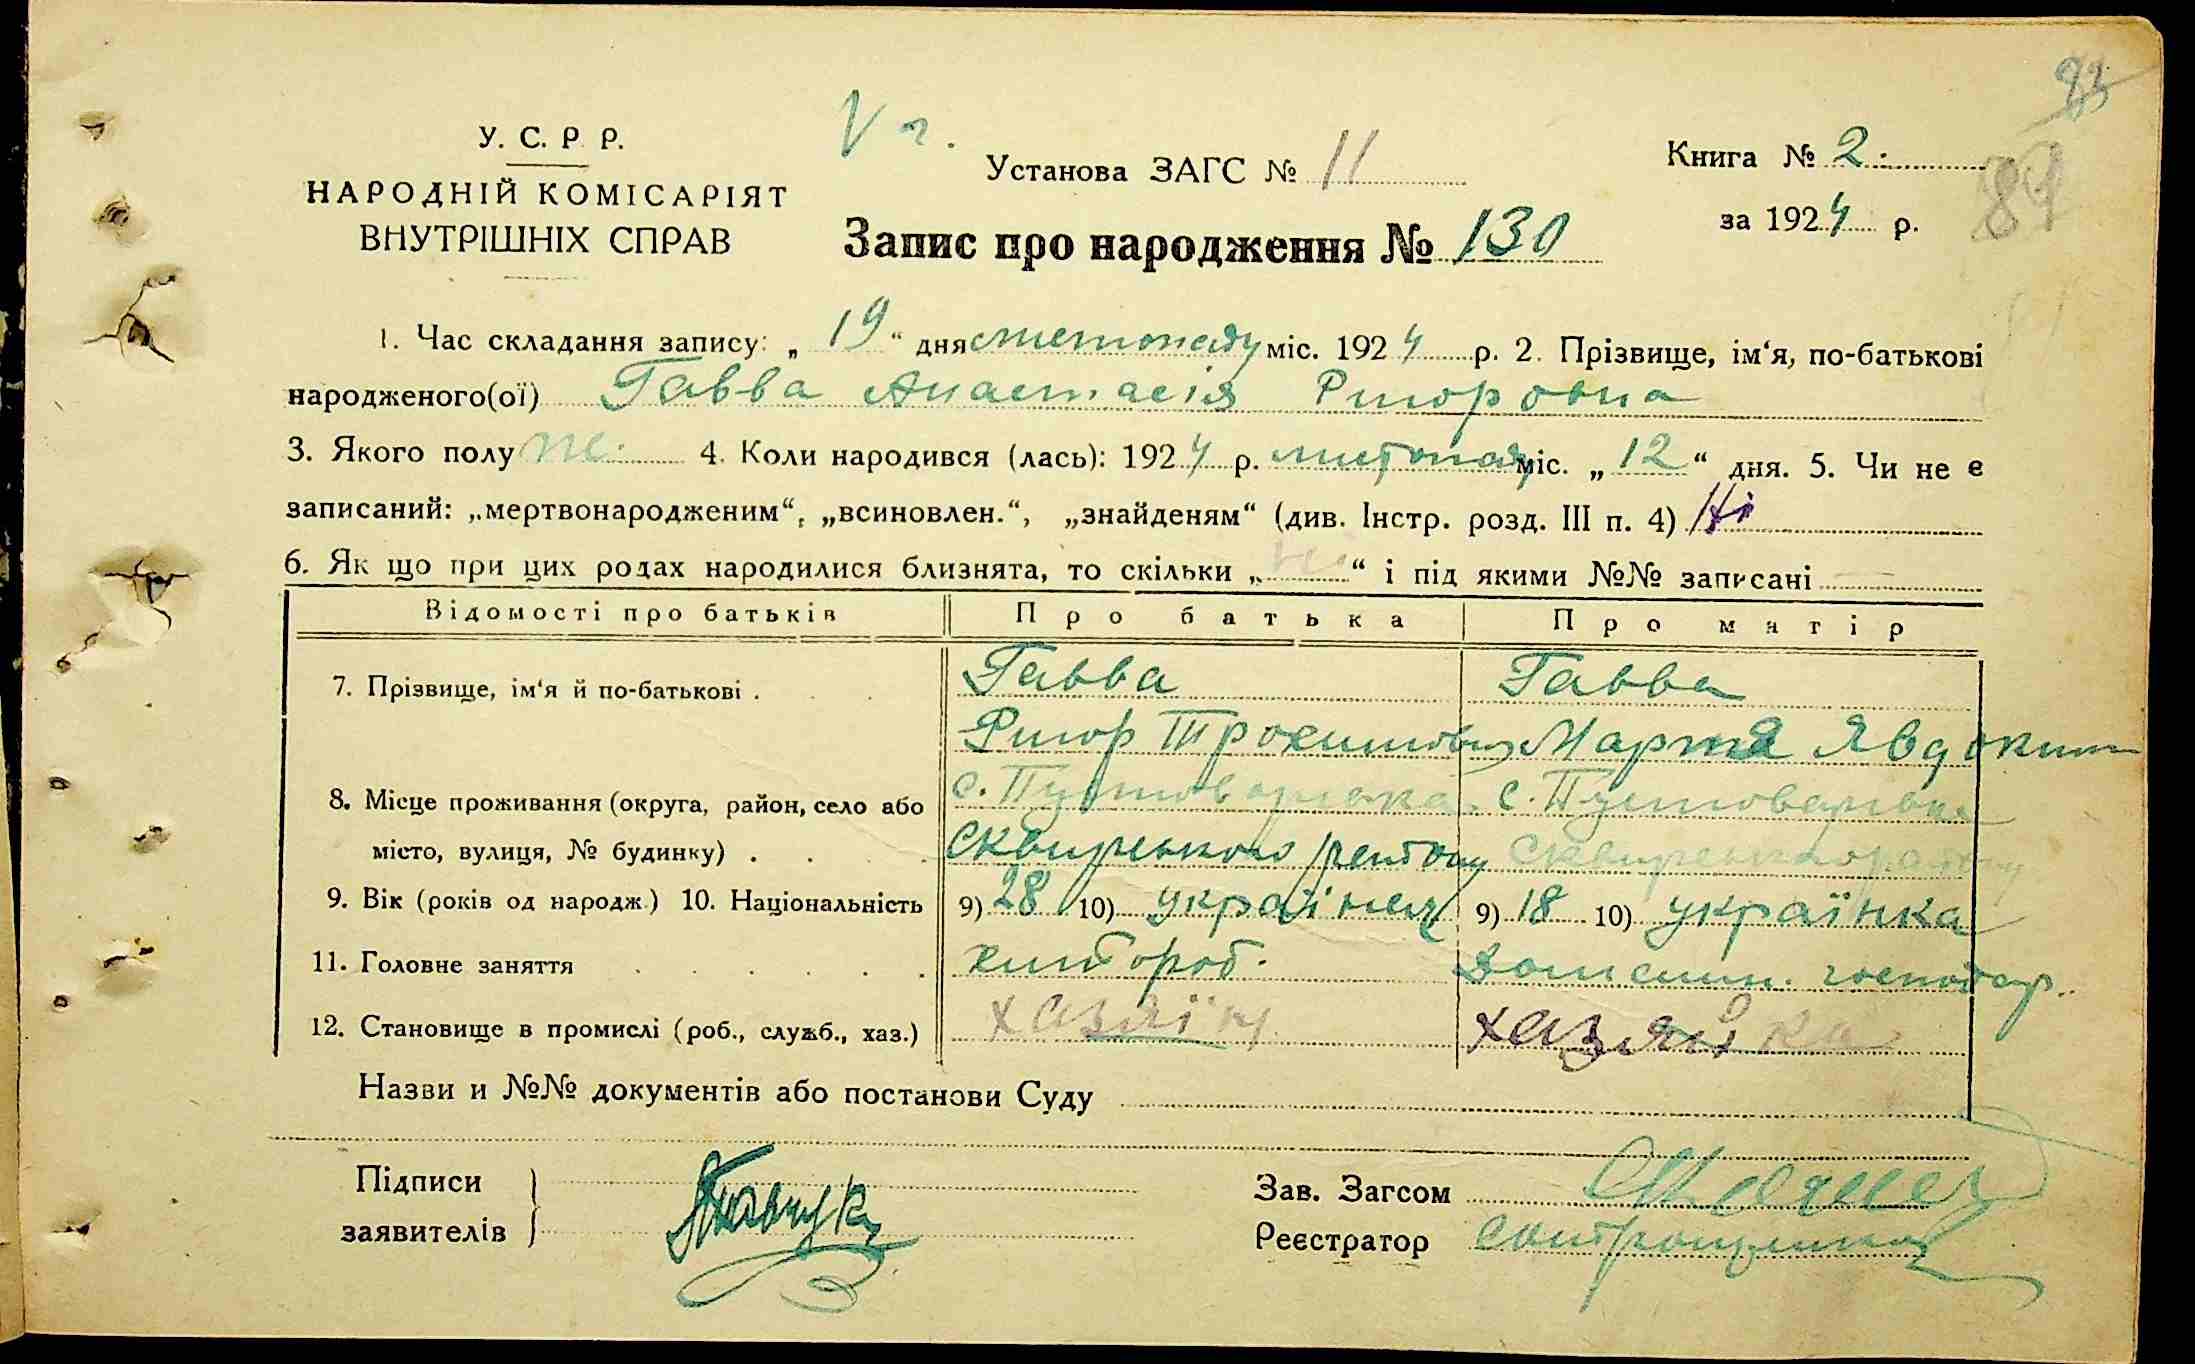 V г.
93
У. С. Р. Р.
НАРОДНІЙ КОМІСАРІЯТ
ВНУТРІШНІХ СПРАВ
Установа ЗАГС № 11
Книга № 2.
за 1924 р.
Запис про народження № 130
1. Час складання запису: „ 19 “ дня листопаду міс. 1924 р. 2. Прізвище, ім‘я, по-батькові
народженого(ої) Гавва Анастасія Ригоровна
3. Якого полу ж. 4. Коли народився (лась): 1924 р. листопаду міс. „ 12 “ дня. 5. Чи не є
записаний: „мертвонародженим“, „всиновлен.“, „знайденям“ (див. Інстр. розд. III п. 4) Ні
6. Як що при цих родах народилися близнята, то скільки „ ні “ і під якими №№ записані —
Відомості про батьків Про батька Про матір
7. Прізвище, ім‘я й по-батькові . Гавва Гавва
Ригор Трохимович Мартя Явдоким
8. Місце проживання (округа, район, село або с. Пустоварівка с. Пустоварівка
місто, вулиця, № будинку) . Сквирського району Сквирського району
9. Вік (років од народж.) 10. Національність 9) 28 10) українец 9) 18 10) українка
11. Головне заняття хлібороб. домашн. господар.
12. Становище в промислі (роб., служб., хаз.) хазяїн хазяйка
Назви и №№ документів або постанови Суду
Підписи
заявителів
Зав. Загсом
Реєстратор